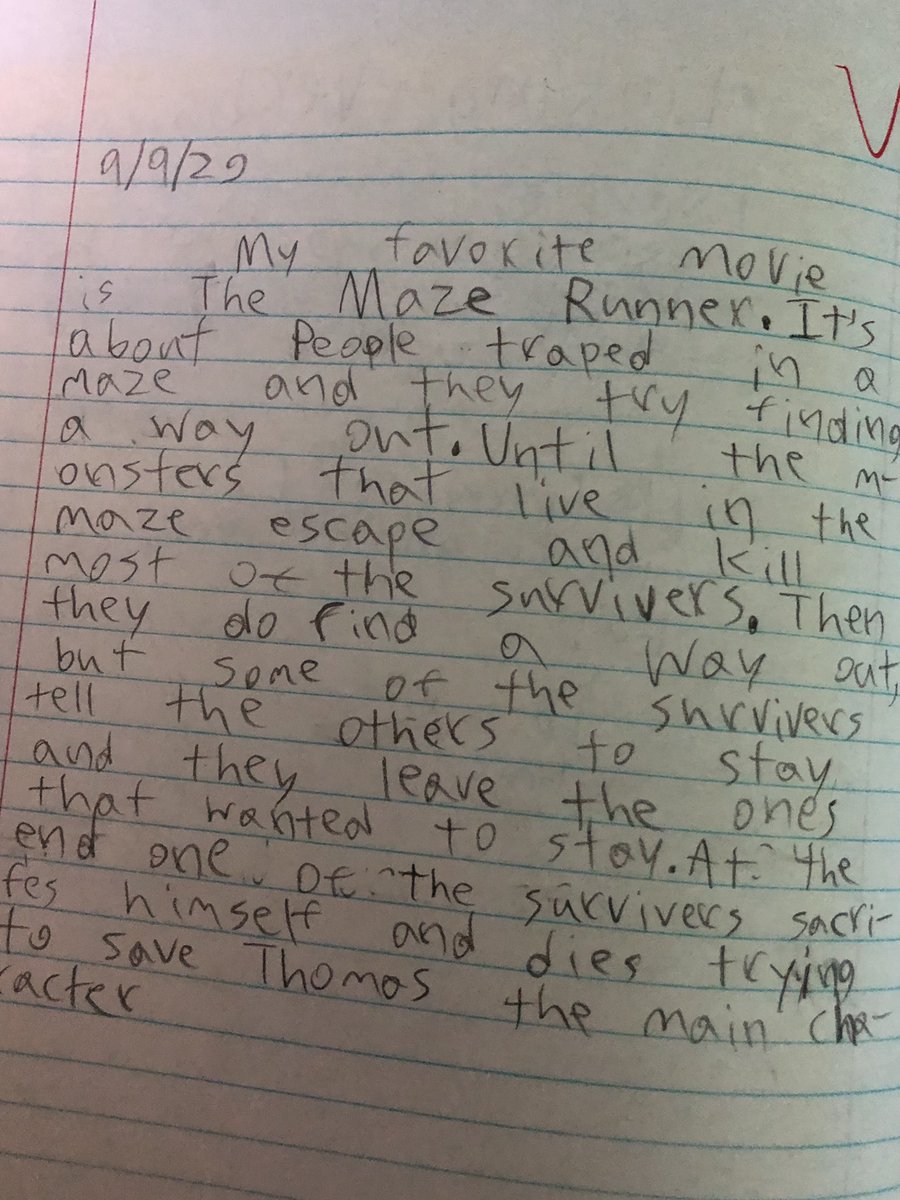 9/9/20
My favorite movie
is The Maze Runner. It's
about People traped in a
maze and they try finding
a way out. Until the m-
onsters that live in the
maze escape and kill
most of the survivers. Then
they do find a way out,
but some of the survivers
tell the others to stay
and they leave the ones
that wanted to stay. At the
end one of the survivers sacri-
fes himself and dies trying
to save Thomas the main cha-
racter